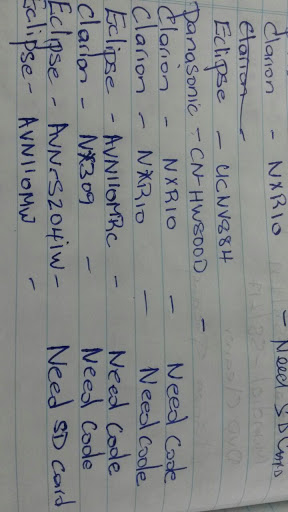 Clarion - NXR10 - Need SD Card
Clarion -
Eclipse - UCNV884
Panasonic - CN-HW800D -
Clarion - NXR10 - Need Code
Clarion - NXR10 - Need Code
Eclipse - AVN110MRC - Need Code
Clarion - NX309 - Need Code
Eclipse - AVN-S204iW - Need SD Card
Eclipse - AVN110MW -